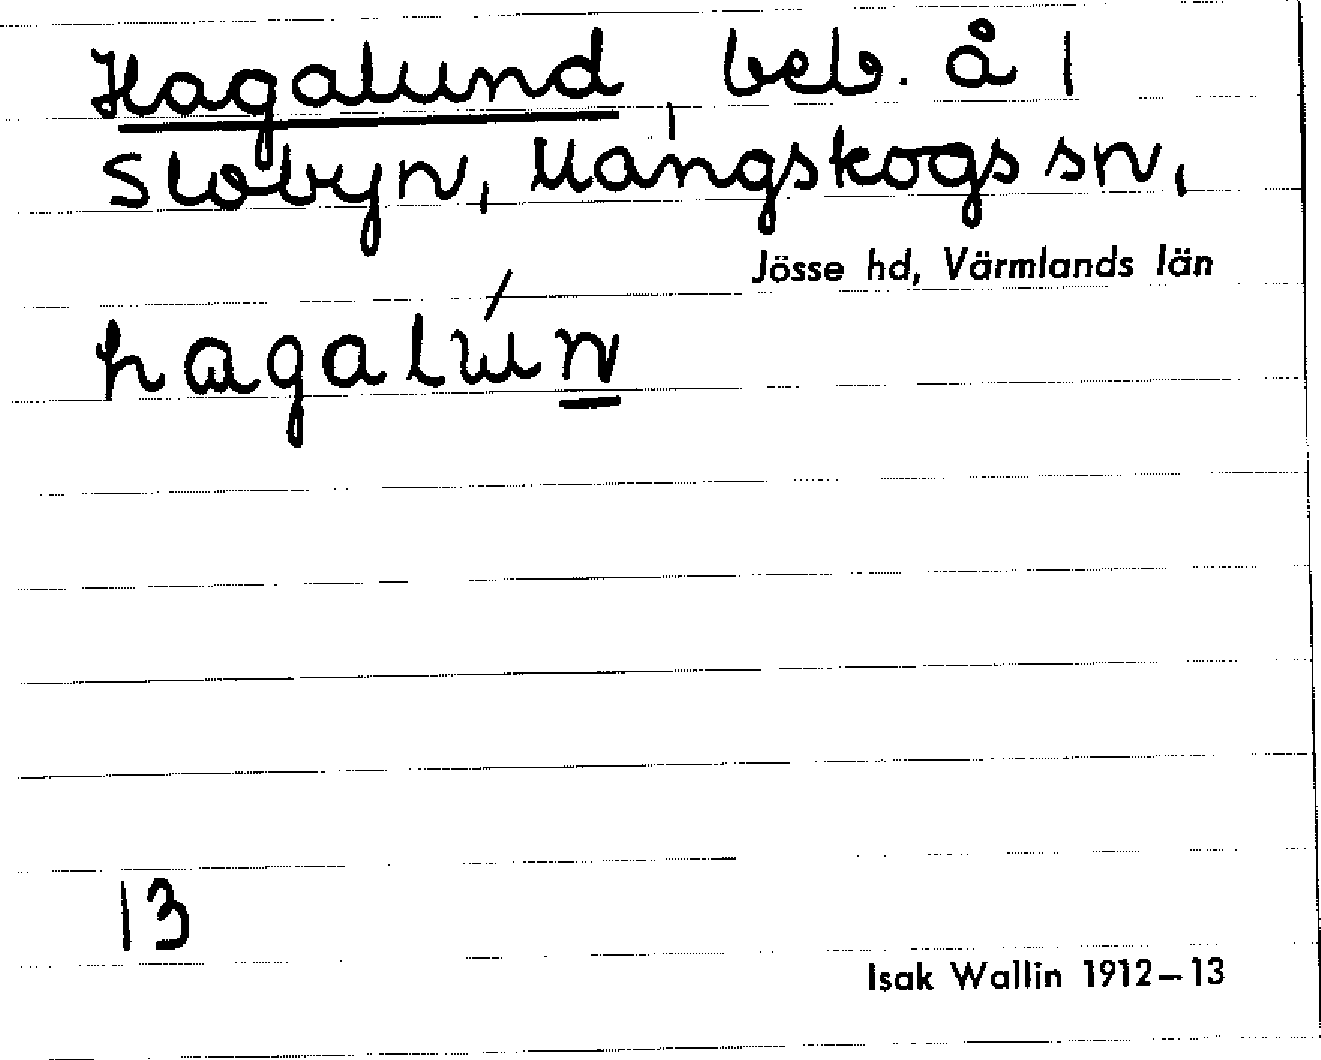 Hagalund, beb. å 1
Slobyn, Mangskogs sn,
Jösse hd, Värmlands län
hagalún
13
Isak Wallin 1912–13